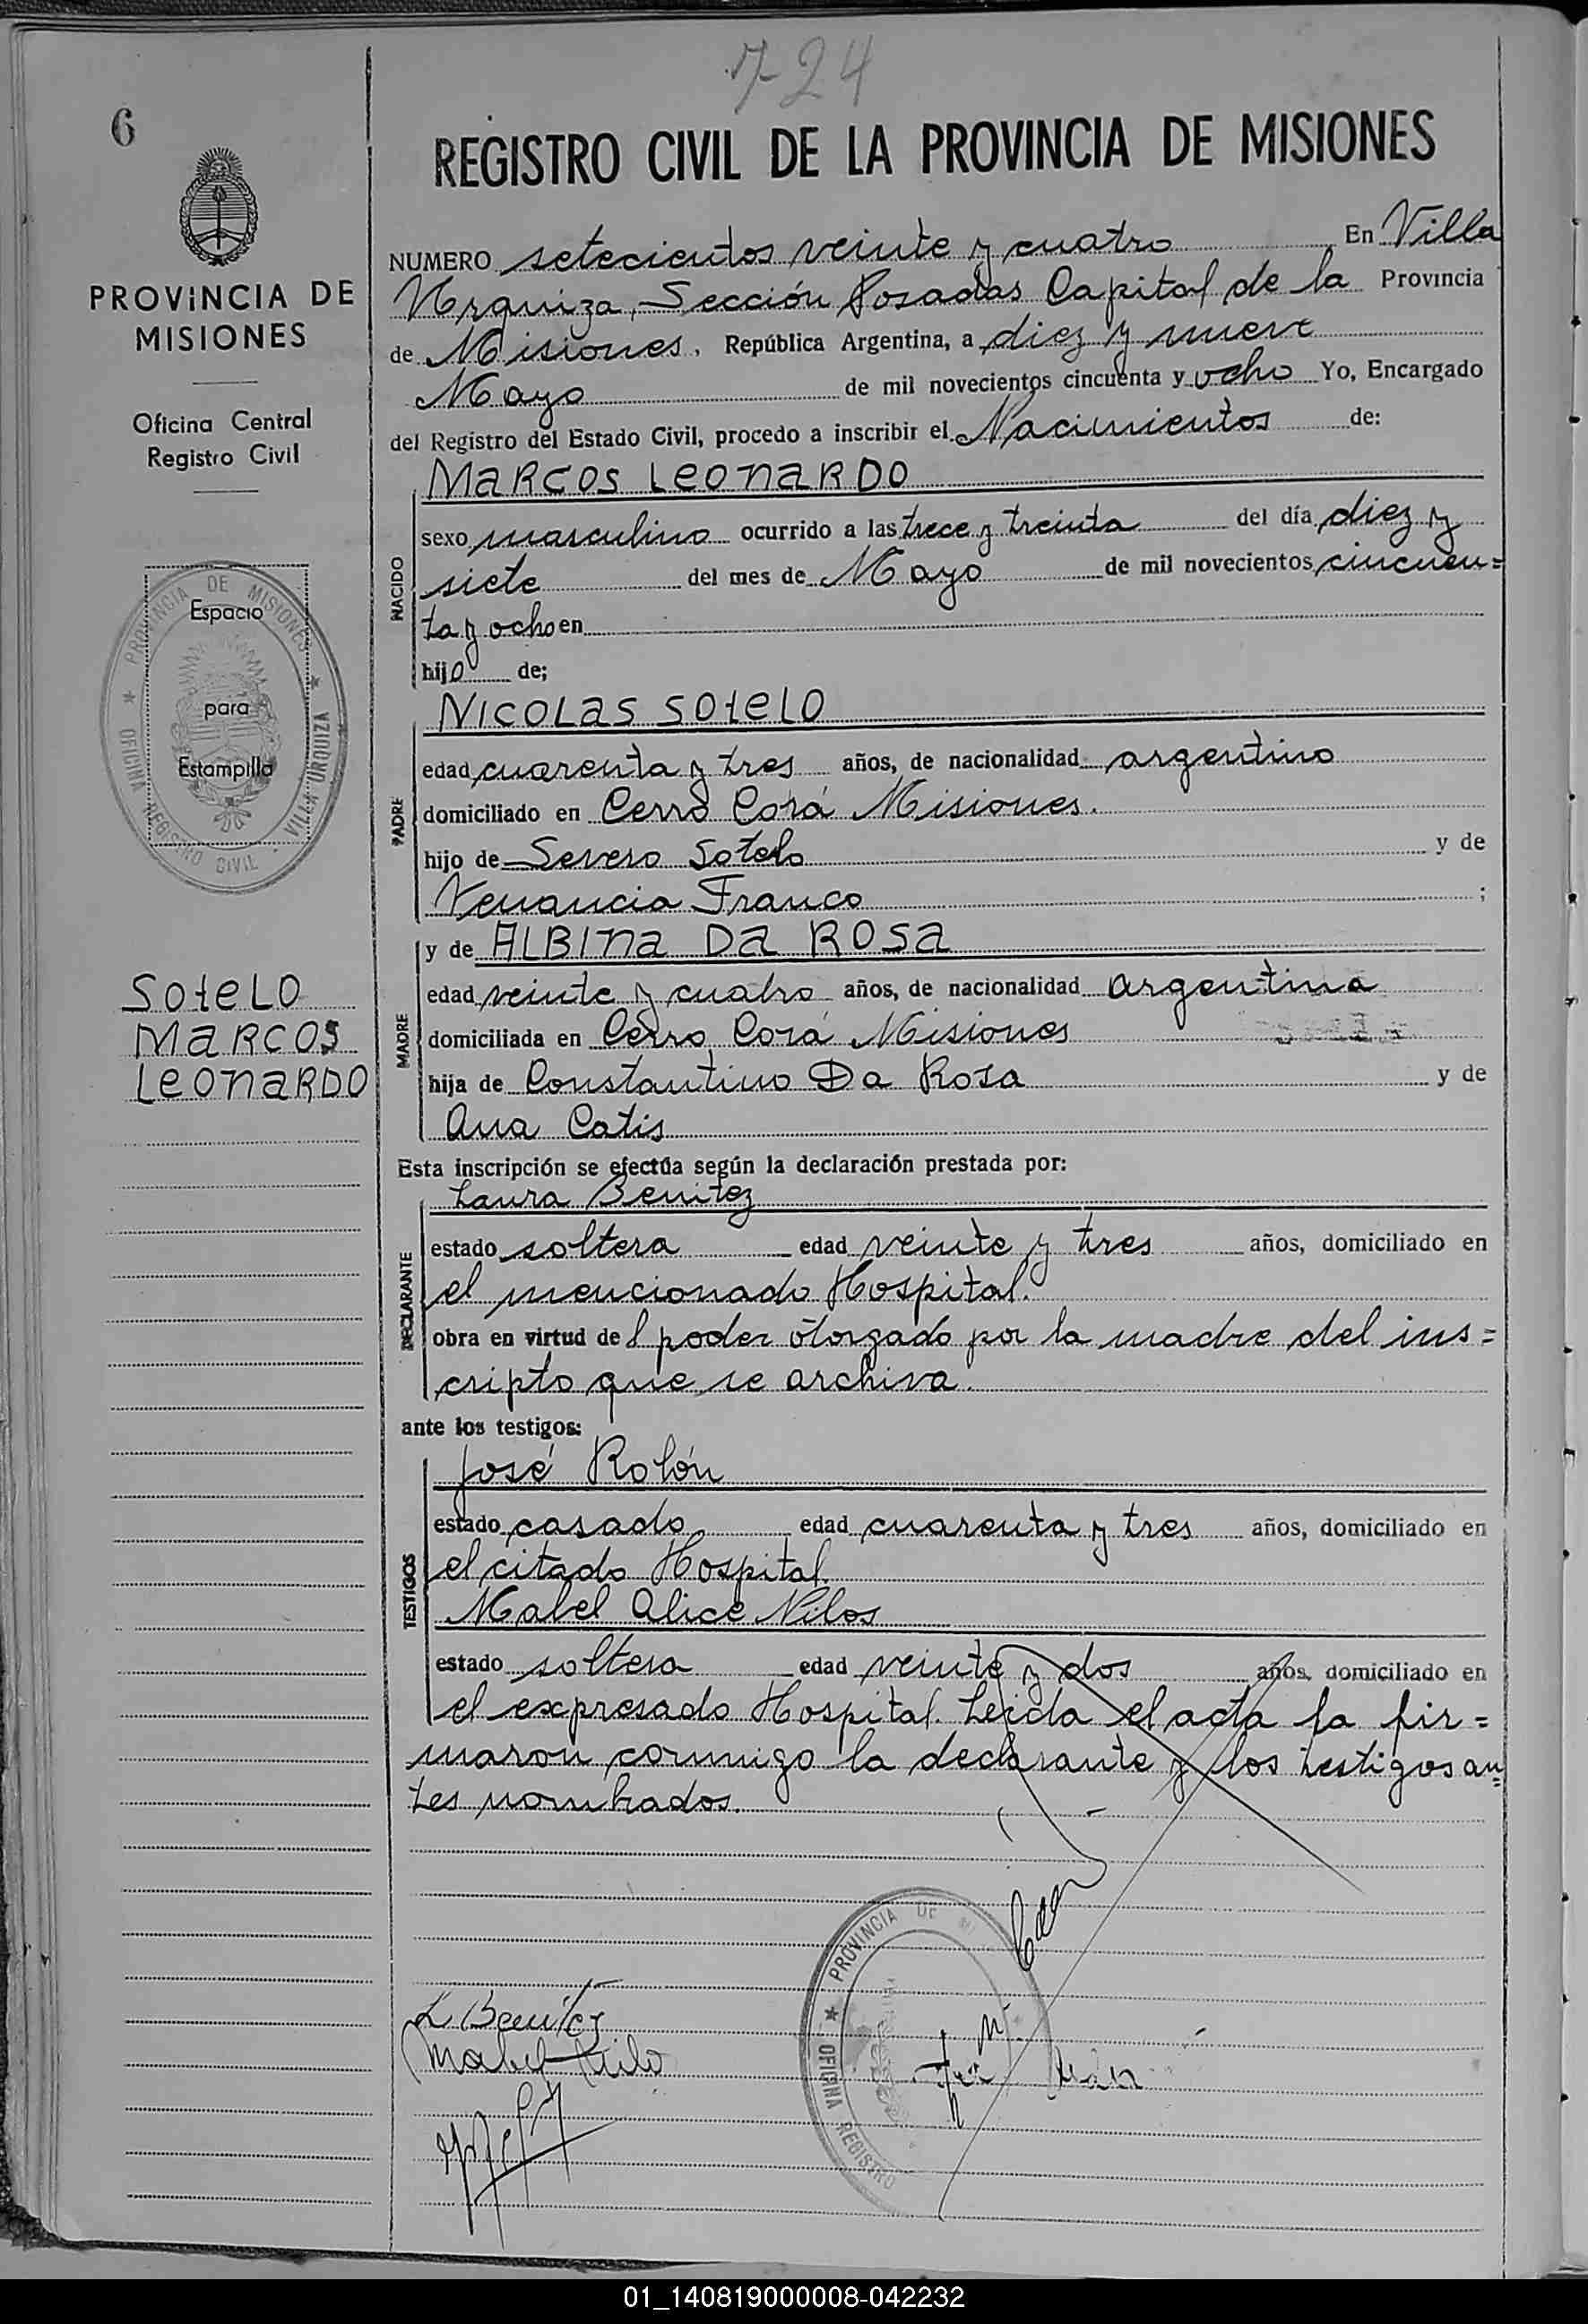 724
6
REGISTRO CIVIL DE LA PROVINCIA DE MISIONES
PROVINCIA DE
MISIONES
Oficina Central
Registro Civil
PROVINCIA DE MISIONES
OFICINA REGISTRO CIVIL - VILLA URQUIZA
Espacio
para
Estampilla
Sotelo
Marcos
Leonardo
NUMERO setecientos veinte y cuatro En Villa
Urquiza, Sección Posadas Capital de la Provincia
de Misiones, República Argentina, a diez y nueve
Mayo de mil novecientos cincuenta y ocho Yo, Encargado
del Registro del Estado Civil, procedo a inscribir el Nacimientos de:
NACIDO
Marcos Leonardo
sexo masculino ocurrido a las trece y treinta del día diez y
siete del mes de Mayo de mil novecientos cincuen=
ta y ocho en
hijo de;
PADRE
Nicolas Sotelo
edad cuarenta y tres años, de nacionalidad argentino
domiciliado en Cerro Corá Misiones.
hijo de Severo Sotelo y de
Venancia Franco ;
MADRE
y de Albina Da Rosa
edad veinte y cuatro años, de nacionalidad argentina
domiciliada en Cerro Corá Misiones
hija de Constantino Da Rosa y de
Ana Catis
Esta inscripción se efectúa según la declaración prestada por:
DECLARANTE
Laura Benitez
estado soltera edad veinte y tres años, domiciliado en
el mencionado Hospital.
obra en virtud del poder otorgado por la madre del ins=
cripto que se archiva.
ante los testigos:
TESTIGOS
José Rolón
estado casado, edad cuarenta y tres años, domiciliado en
el citado Hospital.
Mabel Alice Nilos
estado soltera edad veinte y dos años, domiciliado en
el expresado Hospital. Leida el acta la fir=
maron conmigo la declarante y los testigos an=
tes nombrados.
PROVINCIA DE
OFICINA REGISTRO
L Benitez
Mabel
01_140819000008-042232